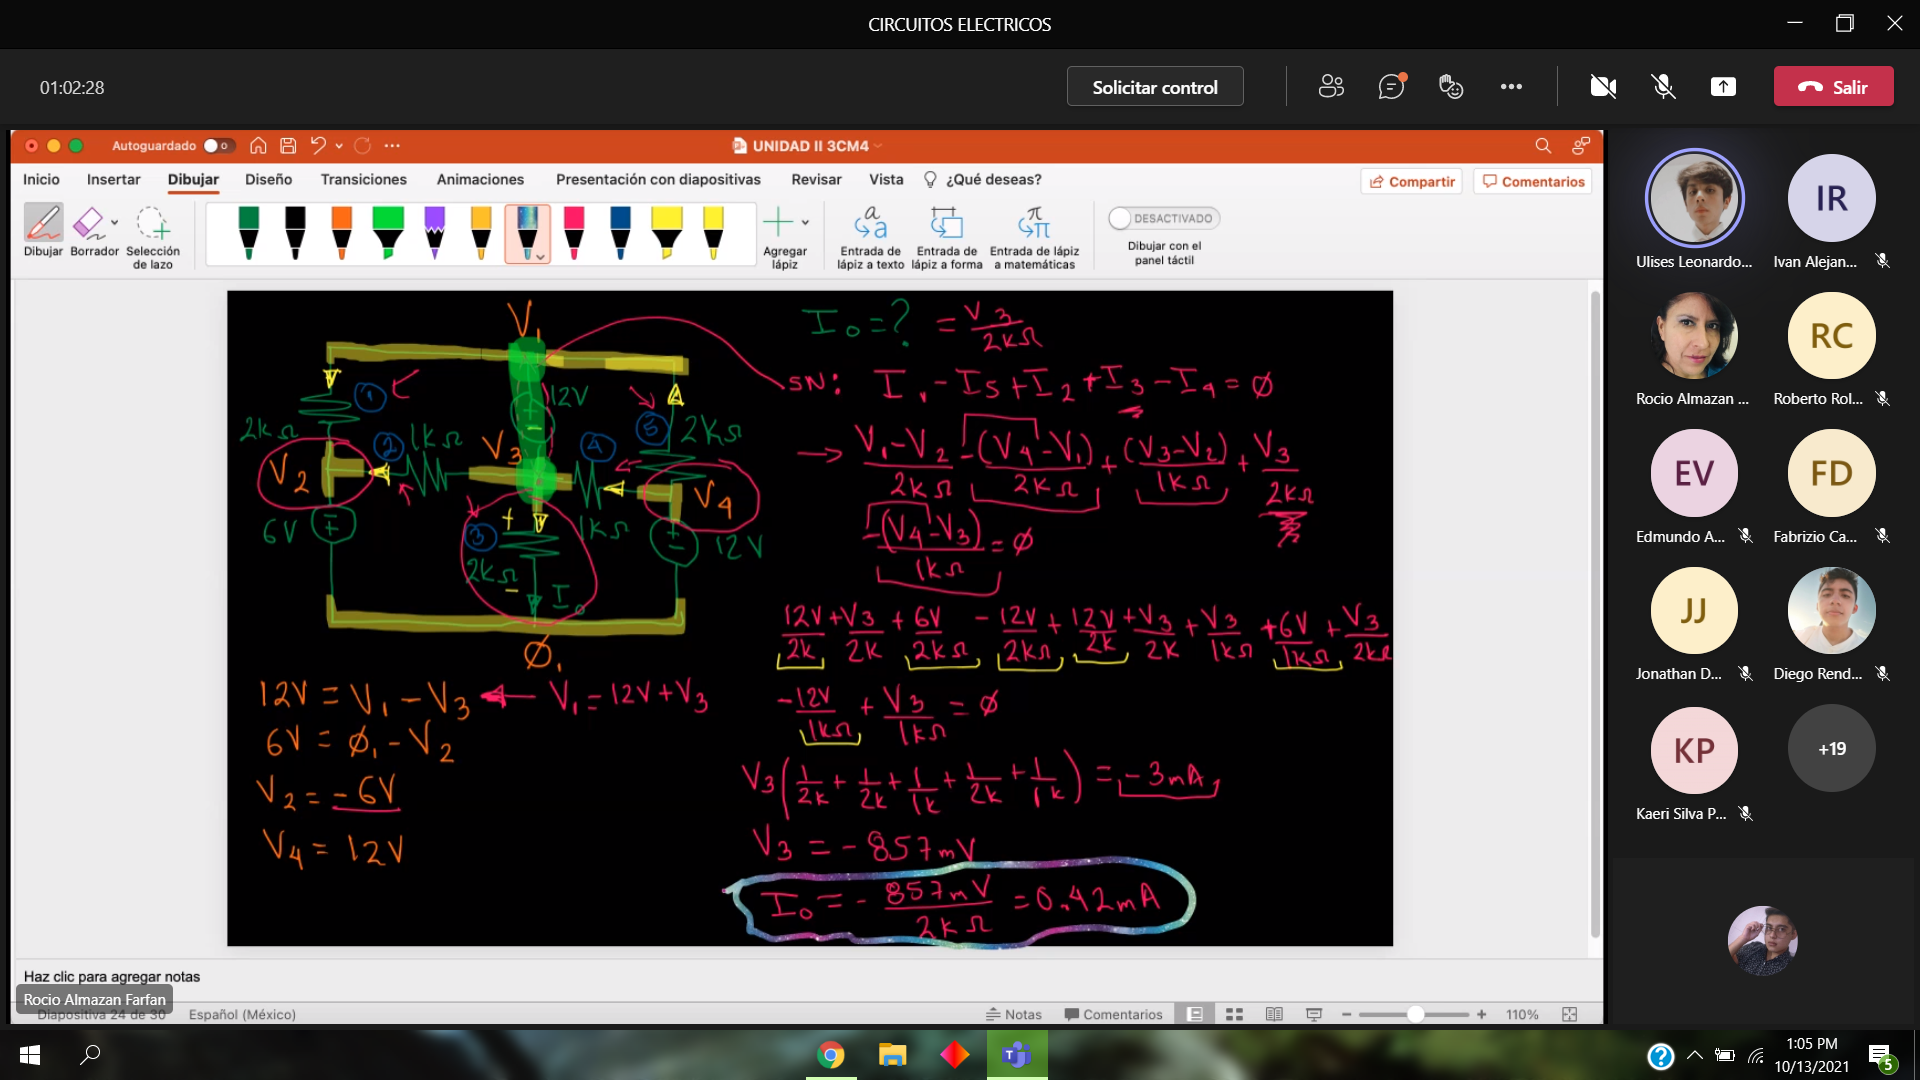 CIRCUITOS ELECTRICOS
01:02:28
Solicitar control
Salir
Autoguardado
UNIDAD II 3CM4
Inicio Insertar Dibujar Diseño Transiciones Animaciones Presentación con diapositivas Revisar Vista ¿Qué deseas?
Compartir Comentarios
Dibujar
Borrador
Selección de lazo
Agregar lápiz
Entrada de lápiz a texto
Entrada de lápiz a forma
Entrada de lápiz a matemáticas
DESACTIVADO
Dibujar con el panel táctil
V₁
12V
1
2kΩ
2
1kΩ
V₃
4
5
2kΩ
V₂
V₄
6V
3
2kΩ
1kΩ
12V
I₀
+
-
Ø₁
12V = V₁ - V₃ ← V₁ = 12V + V₃
6V = Ø₁ - V₂
V₂ = - 6V
V₄ = 12V
I₀ = ? = V₃/2kΩ
SN: I₁ - I₅ + I₂ + I₃ - I₄ = Ø
→ V₁-V₂/2kΩ - (V₄-V₁)/2kΩ + (V₃-V₂)/1kΩ + V₃/2kΩ
-(V₄-V₃)/1kΩ = Ø
12V/2k + V₃/2k + 6V/2kΩ - 12V/2kΩ + 12V/2k + V₃/2k + V₃/1kΩ + 6V/1kΩ + V₃/2kΩ
- 12V/1kΩ + V₃/1kΩ = Ø
V₃(1/2k + 1/2k + 1/1k + 1/2k + 1/1k) = -3mA
V₃ = - 857mV
I₀ = - 857mV/2kΩ = 0.42mA
Haz clic para agregar notas
Rocio Almazan Farfan
Diapositiva 24 de 30 Español (México)
Notas Comentarios 110%
Ulises Leonardo...
IR
Ivan Alejan...
Rocio Almazan ...
RC
Roberto Rol...
EV
Edmundo A...
FD
Fabrizio Ca...
JJ
Jonathan D...
Diego Rend...
KP
Kaeri Silva P...
+19
1:05 PM
10/13/2021
5